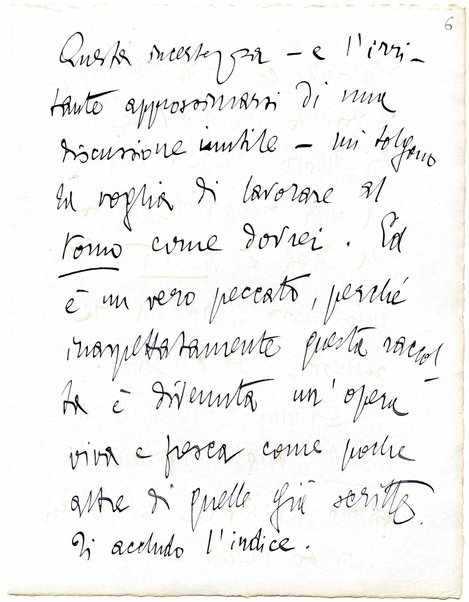 6
Questa incertezza – e l'irri-
tante approssimarsi di una
discussione inutile – mi tolgono
la voglia di lavorare al
tomo come dovrei. Ed
è un vero peccato, perché
inaspettatamente questa raccol-
ta è divenuta un'opera
viva e fresca come poche
altre di quelle già scritte.
Ti accludo l'indice.